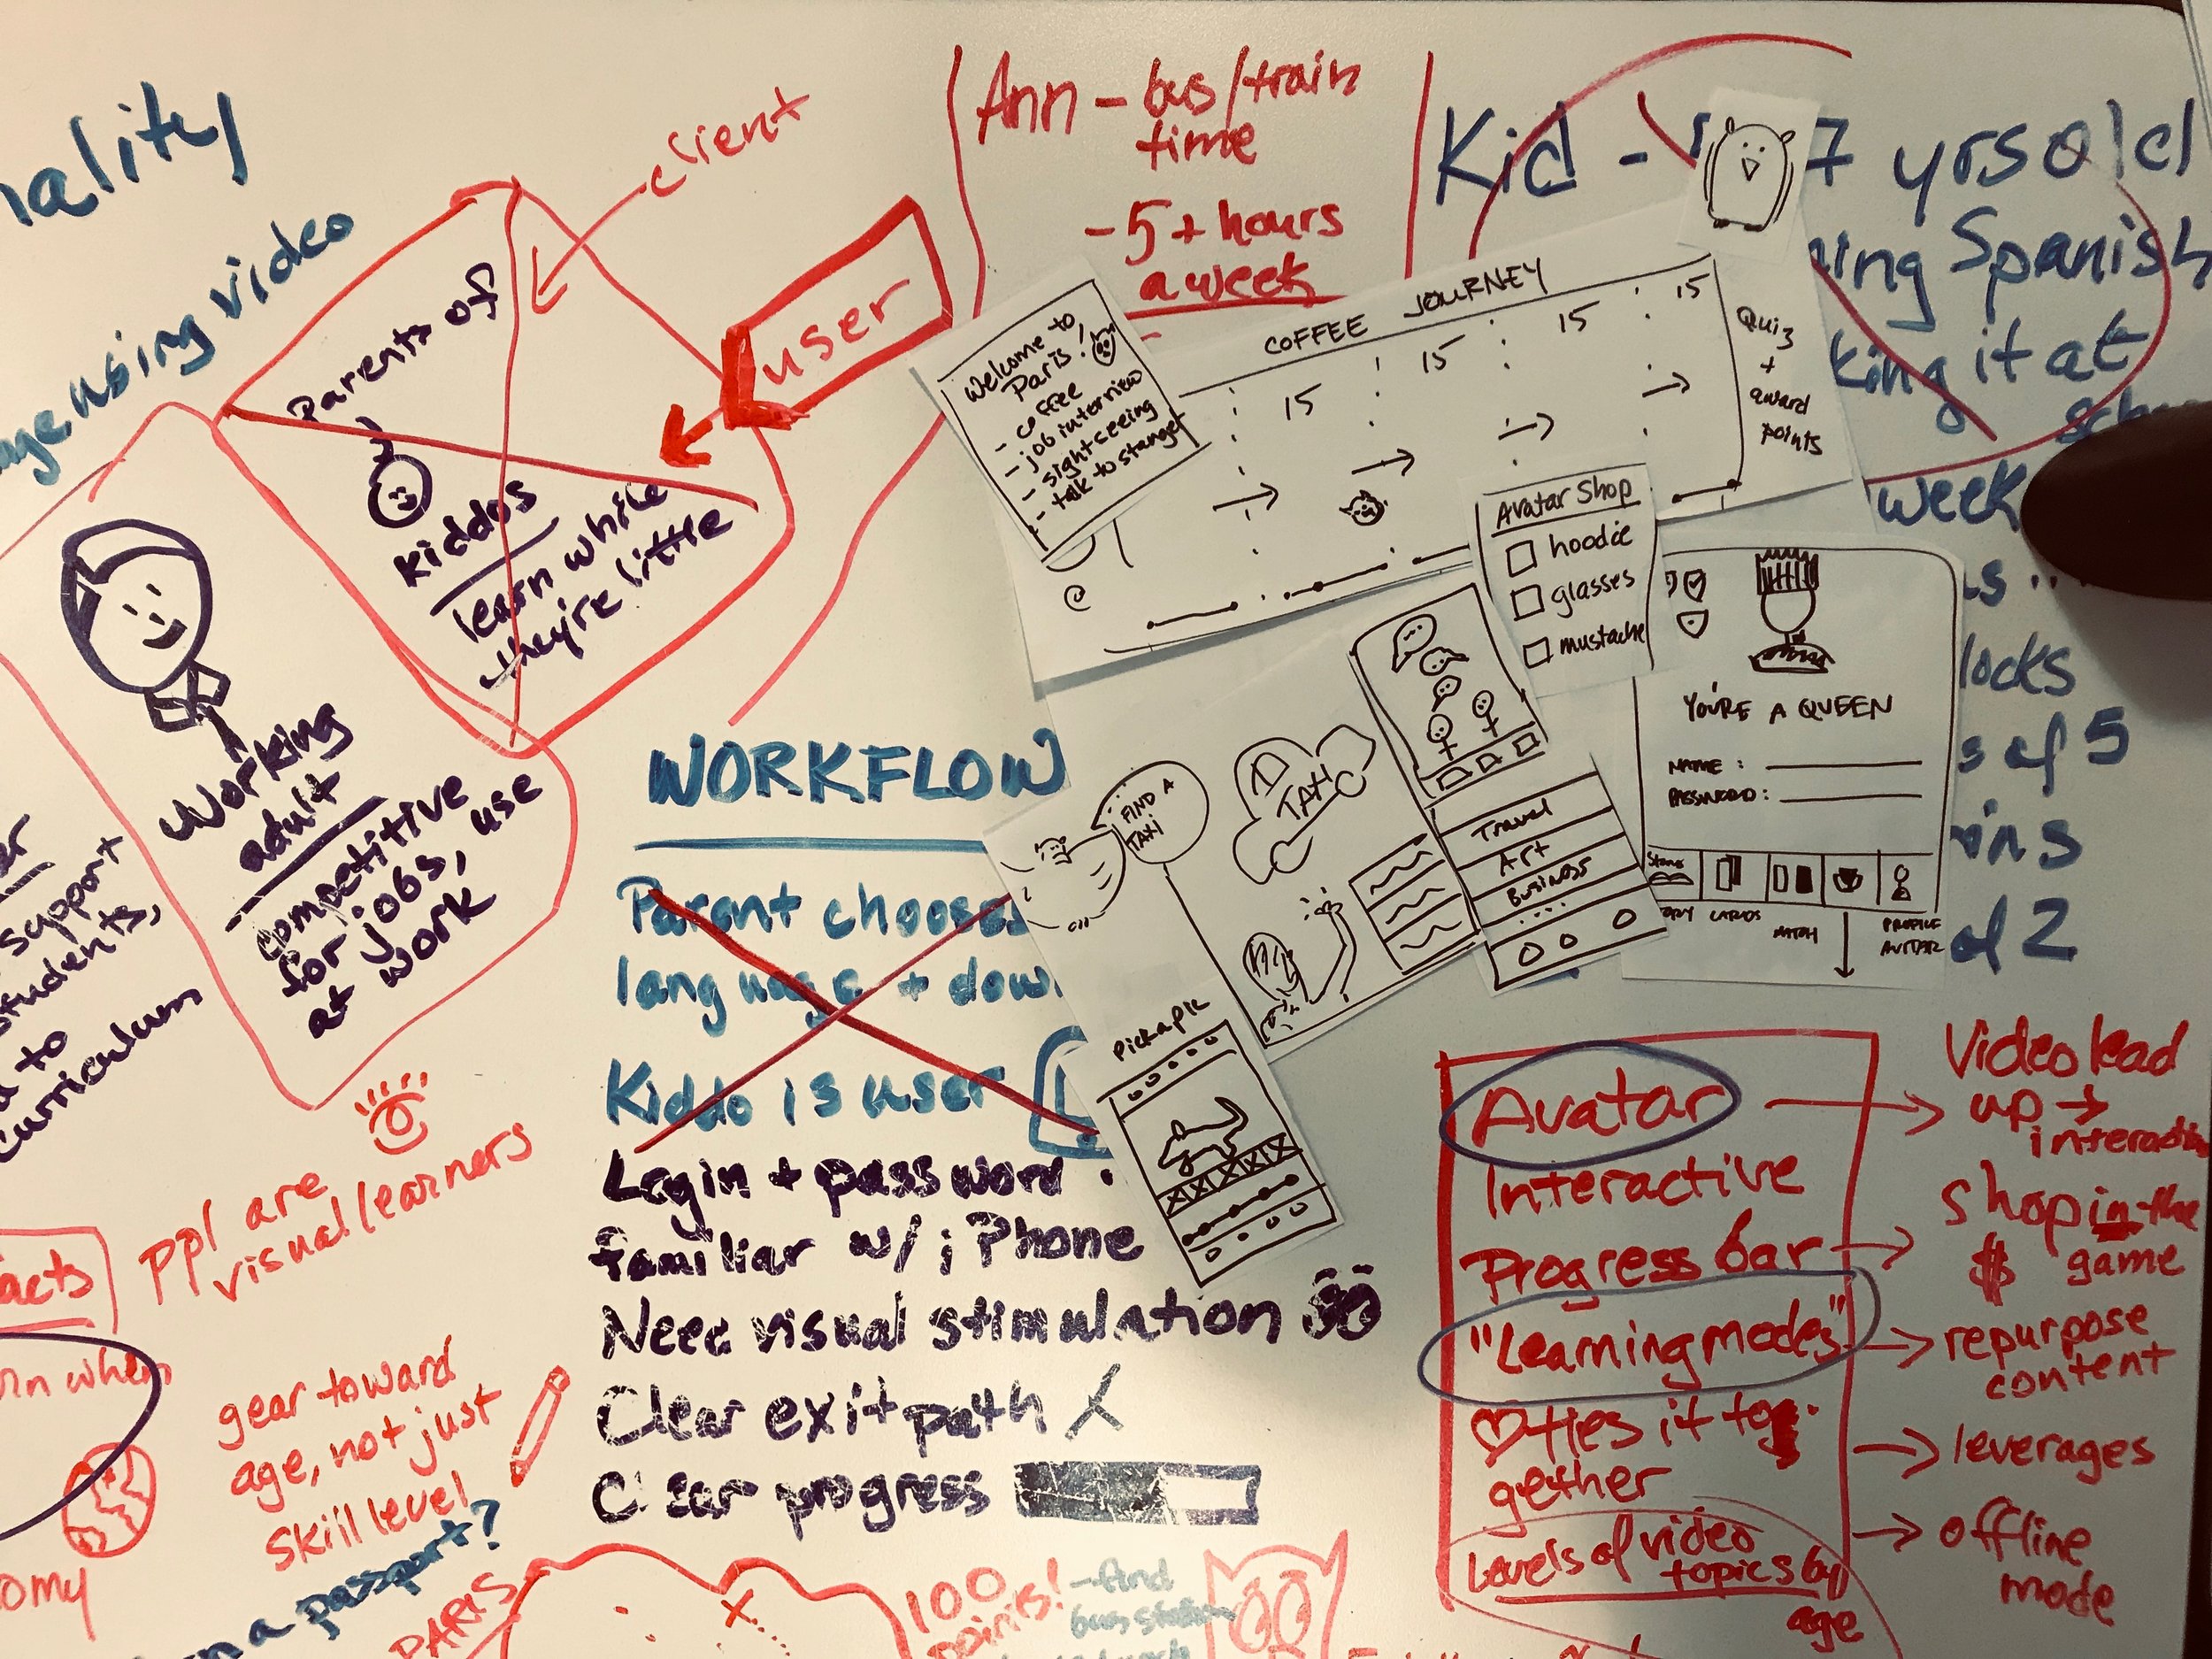 client
Ann - bus/train
time
- 5 + hours
a week
Kid - 7 yrs old
Spanish
it at
week
locks
of 5
2
using video
user
Parents of
kiddos
learn while
they're little
Working
adult
competitive
for jobs, use
at work
support
students,
to
curriculum
ppl are
visual learners
gear toward
age, not just
skill level
a passport?
PARIS
WORKFLOW
Parent chooses
language +
Kiddo is user
Login + password
familiar w/ iPhone
Need visual stimulation
Clear exit path X
Clear progress
100
points!
- find
bus station
Welcome to
Paris!
- coffee
- job interview
- sightseeing
- talk to stranger
COFFEE JOURNEY
15
15
15
15
Quiz
+
award
points
Avatar Shop
hoodie
glasses
mustache
YOU'RE A QUEEN
NAME:
PASSWORD:
CARDS
MATCH
PROFILE
AVATAR
FIND A
TAXI
TAXI
Travel
Art
Business
Pick a pic
Avatar
Interactive
Progress bar
"Learning modes"
ties it to
gether
Levels of video
topics by
age
Video lead
up →
Shop in the
$ game
repurpose
content
leverages
offline
mode